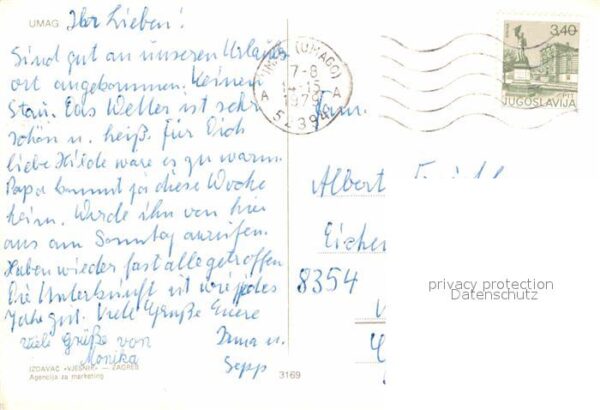 UMAG
Ihr Lieben!
Sind gut an unseren Urlaubs
ort angekommen. Keinen
Stau. Das Wetter ist sehr
schön u. heiß. Für Dich
liebe Hilde wäre es zu warm.
Papa kommt ja diese Woche
heim. Werde ihn von hier
aus am Sonntag anrufen.
Haben wieder fast alle getroffen
Die Unterkunft ist wie jedes
Jahr gut. Viele Grüße Euere
Viele Grüße von
Monika
Irma u.
Sepp
IZDAVAČ «VJESNIK» — ZAGREB
Agencija za marketing
3169
(UMAGO)
7-8
1979
A A
52394
3.40
PTT
JUGOSLAVIJA
Fam.
Albert
Eichen
8354
privacy protection
Datenschutz